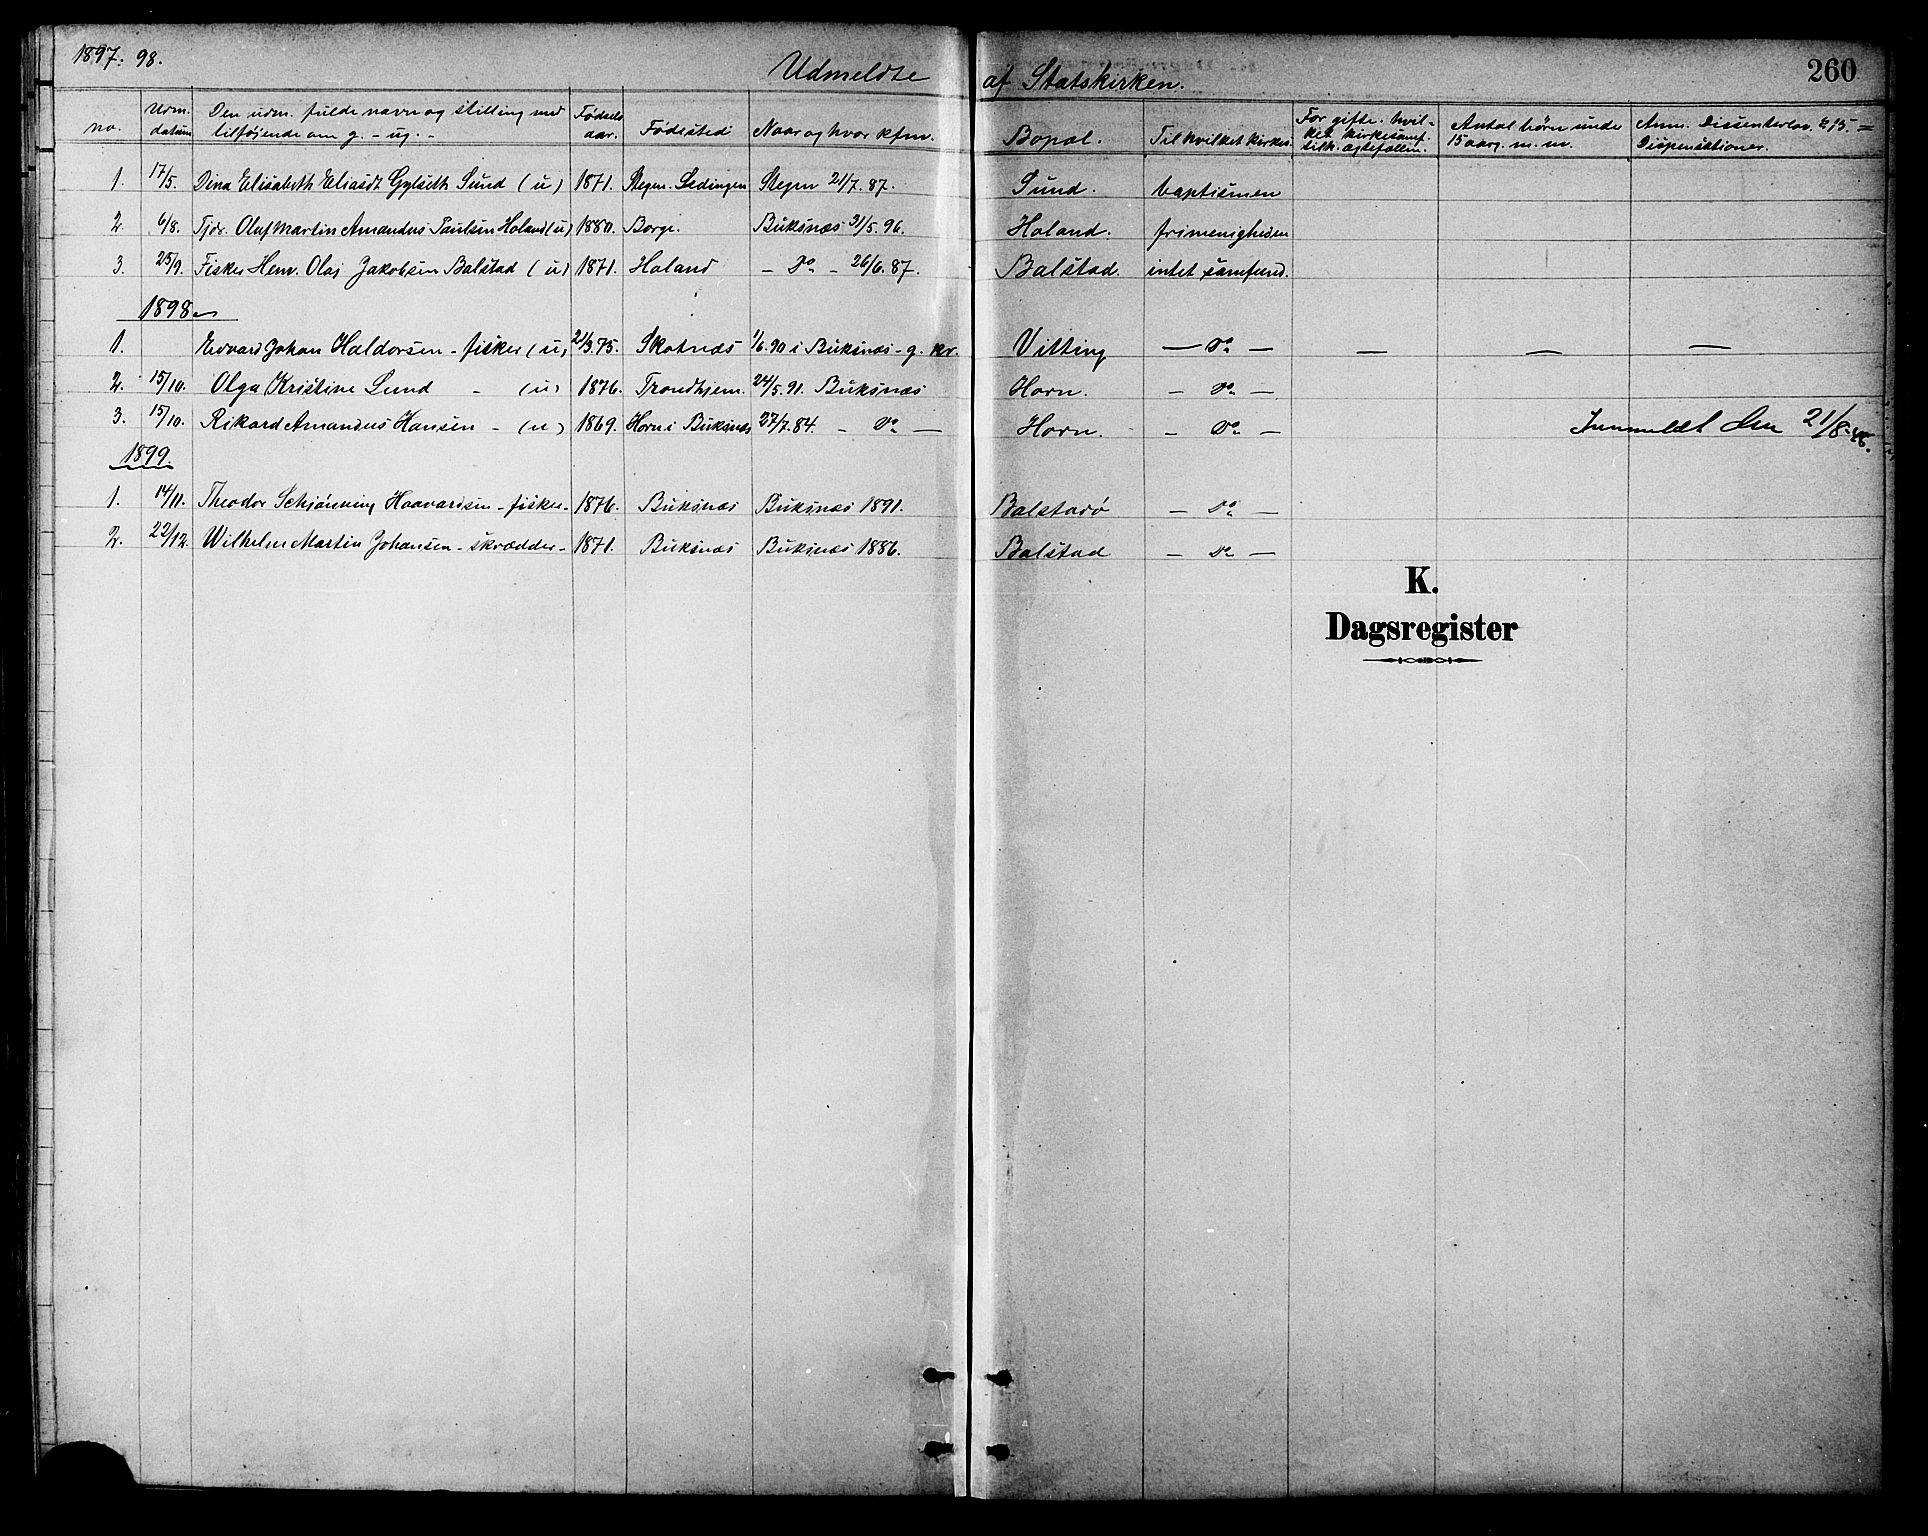 1897. 98.
Udmeldte af Statskirken.
260
no. Udm. datum Den udm. fulde navn og stilling med tilføjende om g. - ug. - Fødsels aar. Fødested Naar og hvor kfm. Bopæl. Til hvilket kirkes. For gifte. hvilket kirkesamf. tilh. ægtefællen. Antal børn under 15 aar g. m. m. Anm. Dissenterlov. § 15. = Dispensationer.
1. 17/5. Dina Elisabeth Eliasdt Gylseth Sund (u) 1871. Stegen. Ledingen Stegen 21/7. 87. Sund. baptismen
2. 6/8. Tjdr. Oluf Martin Amandus Paulsen Holand (u) 1880. Borge. Buksnæs 31/5. 96. Holand. frimenigheden
3. 25/9. Fisker Henr. Olaj Jakobsen Balstad (u) 1871. Holand - Do - 26/6. 87. Balstad. intet samfund.
1898
1. Edvard Johan Haldorsen - fisker (u) 21/3. 75. Skotnæs 1/6. 90 i Buksnæs - g. kr. Vitting - Do - - - -
2. 15/10. Olga Kristine Lund - (u) 1876. Trondhjem. 24/5. 91. Buksnæs Horn. - Do -
3. 15/10. Rikard Amandus Hansen - (u) 1869. Horn i Buksnæs 27/7. 84. - Do - Horn. - Do - Innmeldt den 21/8-48.
1899.
1. 14/11. Theodor Schjønning Haavardsen - fisker - 1876. Buksnæs Buksnæs 1891. Balstadø - Do -
2. 22/12. Wilhelm Martin Johansen - skrædder - 1871. Buksnæs Buksnæs 1886. Balstad - Do -
K.
Dagsregister